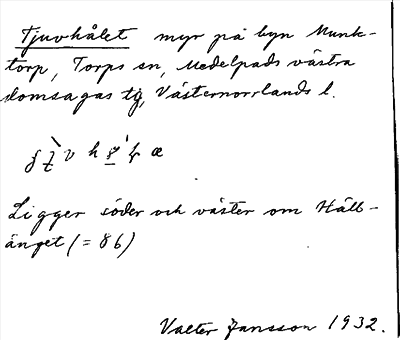 Tjuvhålet myr på byn Munk-
torp, Torps sn, Medelpads västra
domsagas tg, Västernorrlands l.
Ligger söder och väster om Häll-
änget (= 86)
Valter Jansson 1932.